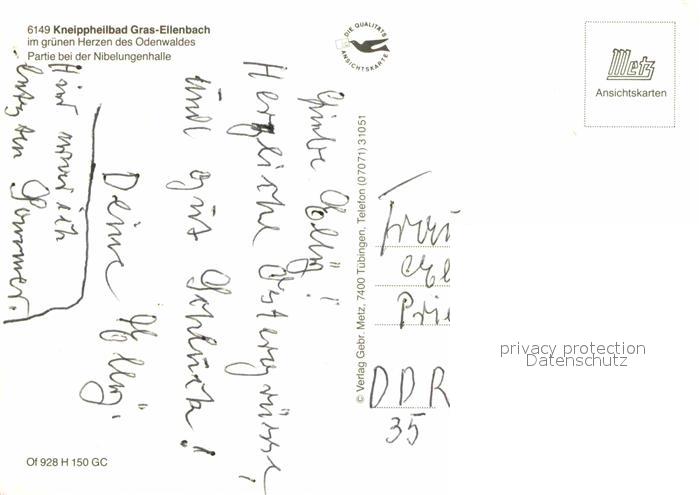 6149 Kneippheilbad Gras-Ellenbach
im grünen Herzen des Odenwaldes
Partie bei der Nibelungenhalle
DIE QUALITÄTS
ANSICHTSKARTE
Metz
Ansichtskarten
Liebe Elly!
Herzliche Ostergrüsse!
und gut Schluck!
Deine Elly.
den Sommer.
© Verlag Gebr. Metz, 7400 Tübingen, Telefon (07071) 31051
Frau
DDR
35
privacy protection
Datenschutz
Of 928 H 150 GC